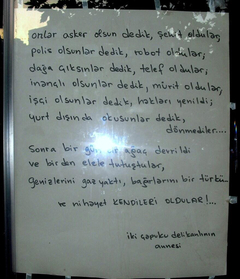 onlar asker olsun dedik, şehit oldular,
polis olsunlar dedik, robot oldular,
dağa çıksınlar dedik, telef oldular,
inançlı olsunlar dedik, mürit oldular,
işçi olsunlar dedik, hakları yenildi;
yurt dışında okusunlar dedik,
dönmediler....
Sonra bir gün bir ağaç devrildi
ve birden elele tutuştular,
genizlerini gaz yaktı, bağırlarını bir türkü..
ve nihayet KENDİLERİ OLDULAR!...
iki çapulcu delikanlının
annesi